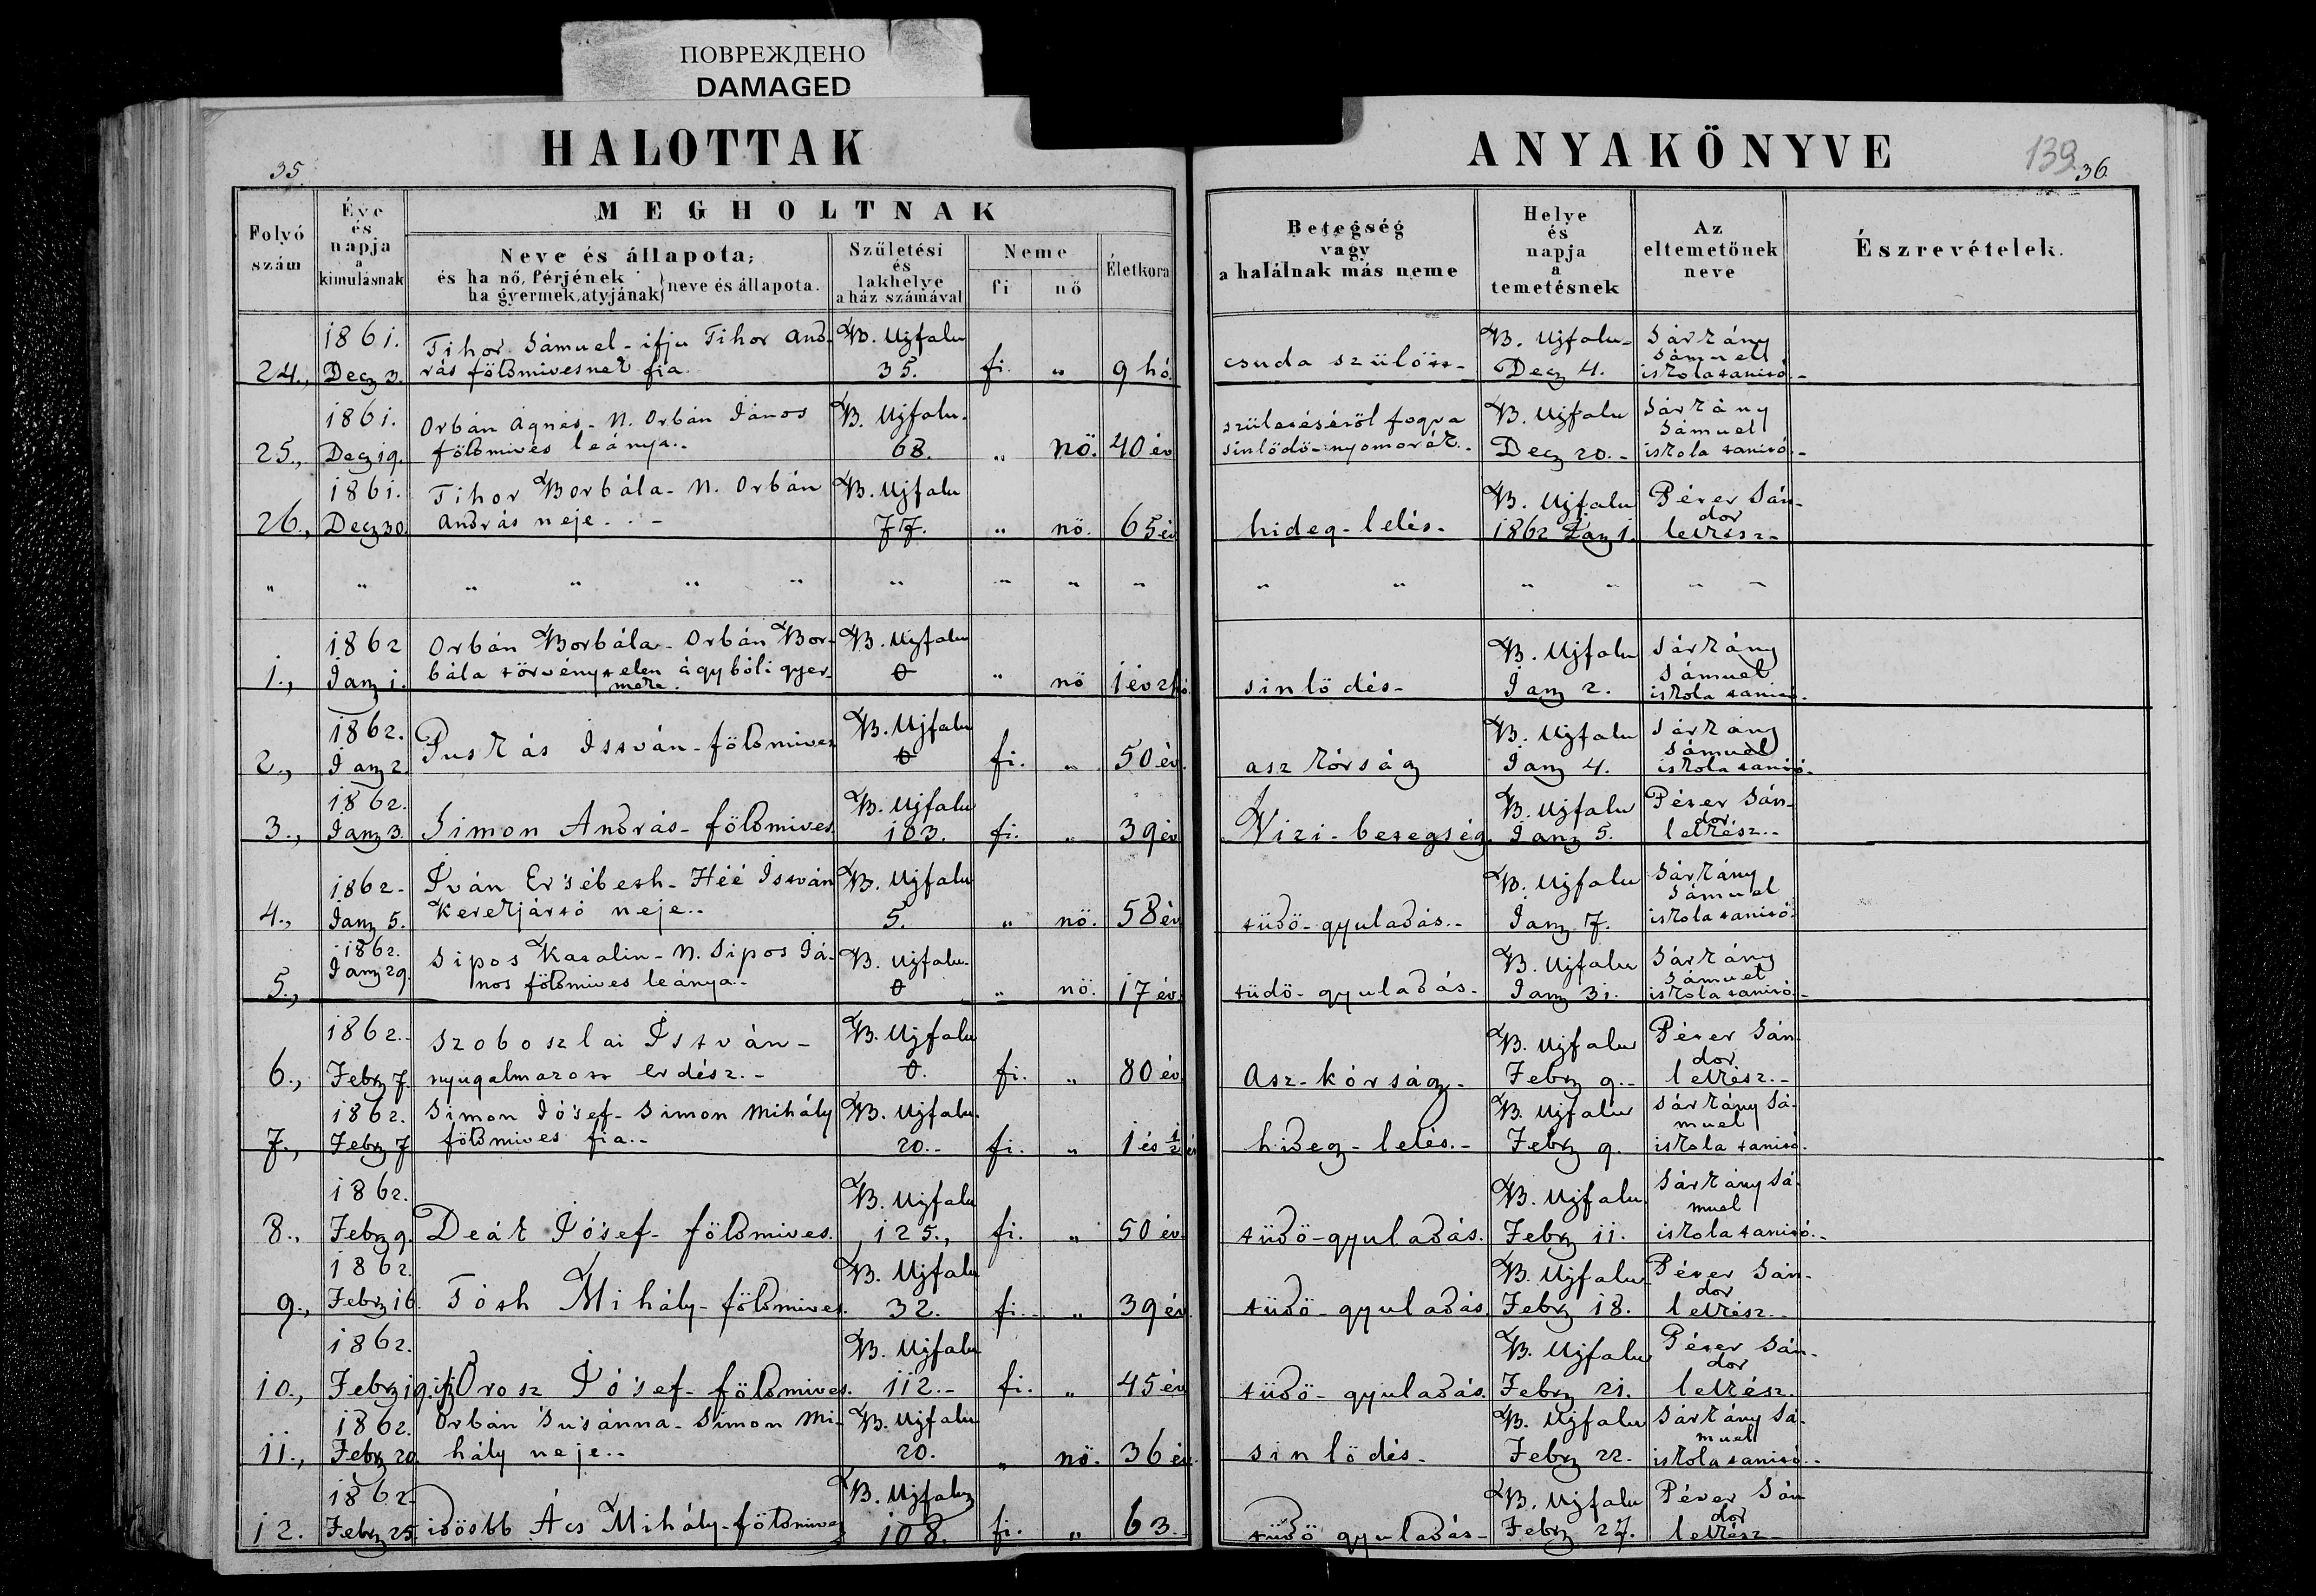 ПОВРЕЖДЕНО
DAMAGED
HALOTTAK ANYAKÖNYVE
35. 139 36.
Folyó szám
Éve és napja a kimulásnak
MEGHOLTNAK
Neve és állapota; és ha nő, férjének ha gyermek, atyjának } neve és állapota.
Születési és lakhelye a ház számával
Neme
fi nő
Életkora
Betegség vagy a halálnak más neme
Helye és napja a temetésnek
Az eltemetőnek neve
Észrevételek.
24., 1861. Decz 3. Tihor Sámuel - ifju Tihor András földmivesnek fia. B. Ujfalu 35. fi. „ 9 hó. csuda szülött - B. Ujfalu - Decz 4. Sárkány Sámuel iskola tanitó. -
25., 1861. Decz 19. Orbán Ágnes - N. Orbán János földmives leánya. - B. Ujfalu. 68. „ nö. 40 év születésétöl fogva sinlödö - nyomorék. - B. Ujfalu Decz 20. - Sárkány Sámuel iskola tanitó. -
26., 1861. Decz 30. Tihor Borbála - N. Orbán András neje. . - B. Ujfalu 77. „ nö. 65 év hideg - lelés - B. Ujfalu 1862 Jan 1. Péter Sándor lelkész -
„ „ „ „ „ „ „ „ „ „ „ „ „ „ „ „
1., 1862 Jan 1. Orbán Borbála - Orbán Borbála törvénytelen ágybóli gyermeke. B. Ujfalu 0 „ nö 1 év 2 hó. sinlödés - B. Ujfalu Jan 2. Sárkány Sámuel iskola tanitó.
2., 1862. Jan 2. Puskás István - földmives B. Ujfalu 0 fi. „ 50 év. aszkórság B. Ujfalu Jan 4. Sárkány Sámuel iskola tanitó. -
3., 1862. Jan 3. Simon András - földmives. B. Ujfalu 103. fi. „ 39 év Vizi - betegség. B. Ujfalu Jan 5. Péter Sándor lelkész. -
4., 1862 - Jan 5. Iván Ersébeth - Héé István kerekjártó neje. - B. Ujfalu 5. „ nö. 58 év tüdö - gyuladás. - B. Ujfalu Jan 7. Sárkány Sámuel iskola tanitó.
5., 1862. Jan 29. Sipos Katalin - N. Sipos János földmives leánya. - B. Ujfalu. 0 „ nö. 17 év. tüdö - gyuladás - B. Ujfalu Jan 31. Sárkány Sámuel iskola tanitó. -
6., 1862. - Febr 7. Szoboszlai István - nyugalmazott erdész. - B. Ujfalu 0. fi. „ 80 év. Asz - kórság - B. Ujfalu Febr 9. - Péter Sándor lelkész. -
7., 1862. Febr 7 Simon Jósef - Simon Mihály földmives fia. - B. Ujfalu. 20. - fi. „ 1 és 1/2 év hideg - lelés. - B. Ujfalu Febr 9. Sárkány Sámuel iskola tanitó.
8., 1862. Febr 9. Deák Jósef - földmives. B. Ujfalu 125., fi. „ 50 év. tüdö - gyuladás. B. Ujfalu. Febr 11. Sárkány Sámuel iskola tanitó. -
9., 1862. Febr 16. Tóth Mihály - földmives. B. Ujfalu 32. fi. - „ 39 év. tüdö - gyuladás. B. Ujfalu Febr 18. Péter Sándor lelkész. -
10., 1862. Febr 19. ifj Orosz Jósef - földmives. B. Ujfalu 112. - fi. „ 45 év tüdö - gyuladás. B. Ujfalu Febr 21. Péter Sándor lelkész.
11., 1862. Febr 20. Orbán Susánna - Simon Mihály neje. - B. Ujfalu 20. „ nö. 36 év. sinlödés - B. Ujfalu Febr 22. Sárkány Sámuel iskola tanitó. -
12. 1862. Febr 25. idösbb Ács Mihály - földmives B. Ujfalu 108. fi. „ 63. - tüdö gyuladás - B. Ujfalu Febr 27. Péter Sándor lelkész -